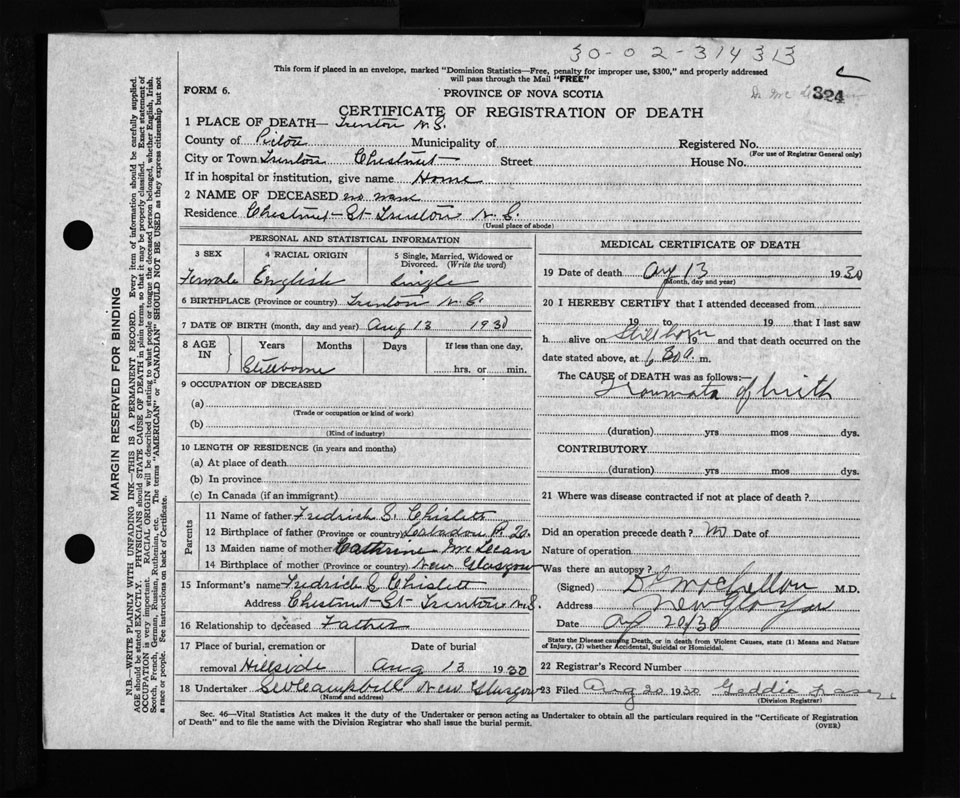 30-02-314313
This form if placed in an envelope, marked "Dominion Statistics—Free, penalty for improper use, $300," and properly addressed
will pass through the Mail "FREE"
FORM 6.
PROVINCE OF NOVA SCOTIA
324
CERTIFICATE OF REGISTRATION OF DEATH
1 PLACE OF DEATH— Trenton N.S.
County of Pictou Municipality of Registered No.
(For use of Registrar General only)
City or Town Trenton Chestnut Street House No.
If in hospital or institution, give name Home
2 NAME OF DECEASED no name
Residence Chestnut St Trenton N.S.
(Usual place of abode)
PERSONAL AND STATISTICAL INFORMATION
3 SEX 4 RACIAL ORIGIN 5 Single, Married, Widowed or
Divorced. (Write the word)
Female English Single
6 BIRTHPLACE (Province or country) Trenton N.S.
7 DATE OF BIRTH (month, day and year) Aug 13 1930
8 AGE IN Years Months Days If less than one day,
Stillborne hrs. or min.
9 OCCUPATION OF DECEASED
(a)
(Trade or occupation or kind of work)
(b)
(Kind of industry)
10 LENGTH OF RESIDENCE (in years and months)
(a) At place of death
(b) In province
(c) In Canada (if an immigrant)
Parents
11 Name of father Fredrich S. Chislett
12 Birthplace of father (Province or country)
13 Maiden name of mother Cathrine McLean
14 Birthplace of mother (Province or country) New Glasgow
15 Informant's name Fredrich S Chislett
Address Chestnut St Trenton N.S.
16 Relationship to deceased Father
17 Place of burial, cremation or Date of burial
removal Hillside Aug 13 1930
18 Undertaker Campbell New Glasgow
(Name and address)
MEDICAL CERTIFICATE OF DEATH
19 Date of death Aug 13 1930
(Month, day and year)
20 I HEREBY CERTIFY that I attended deceased from
19 to 19 that I last saw
h alive on Stillborn 19 and that death occurred on the
date stated above, at 6 30 a. m.
The CAUSE of DEATH was as follows:—
Traumata of birth
(duration) yrs mos dys.
CONTRIBUTORY
(duration) yrs mos dys.
21 Where was disease contracted if not at place of death?
Did an operation precede death? No Date of
Nature of operation
Was there an autopsy?
(Signed) M.D.
Address New Glasgow
Date Aug 20/30
State the Disease causing Death, or in death from Violent Causes, state (1) Means and Nature
of Injury, (2) whether Accidental, Suicidal or Homicidal.
22 Registrar's Record Number
23 Filed Aug 20 1930 Geddie Fraser
(Division Registrar)
Sec. 46—Vital Statistics Act makes it the duty of the Undertaker or person acting as Undertaker to obtain all the particulars required in the "Certificate of Registration
of Death" and to file the same with the Division Registrar who shall issue the burial permit.
(OVER)
MARGIN RESERVED FOR BINDING
N.B.—WRITE PLAINLY WITH UNFADING INK—THIS IS A PERMANENT RECORD. Every item of information should be carefully supplied.
AGE should be stated EXACTLY. PHYSICIANS should STATE CAUSE OF DEATH in plain terms, so that it may be properly classified. Exact statement of
OCCUPATION is very important. RACIAL ORIGIN will be described by stating to what people or tongue the deceased person belonged, whether English, Irish,
Scotch, French, German, Russian, Ruthenian, etc. The terms "AMERICAN" or "CANADIAN" SHOULD NOT BE USED as they express citizenship but not
a race or people. See instructions on back of Certificate.